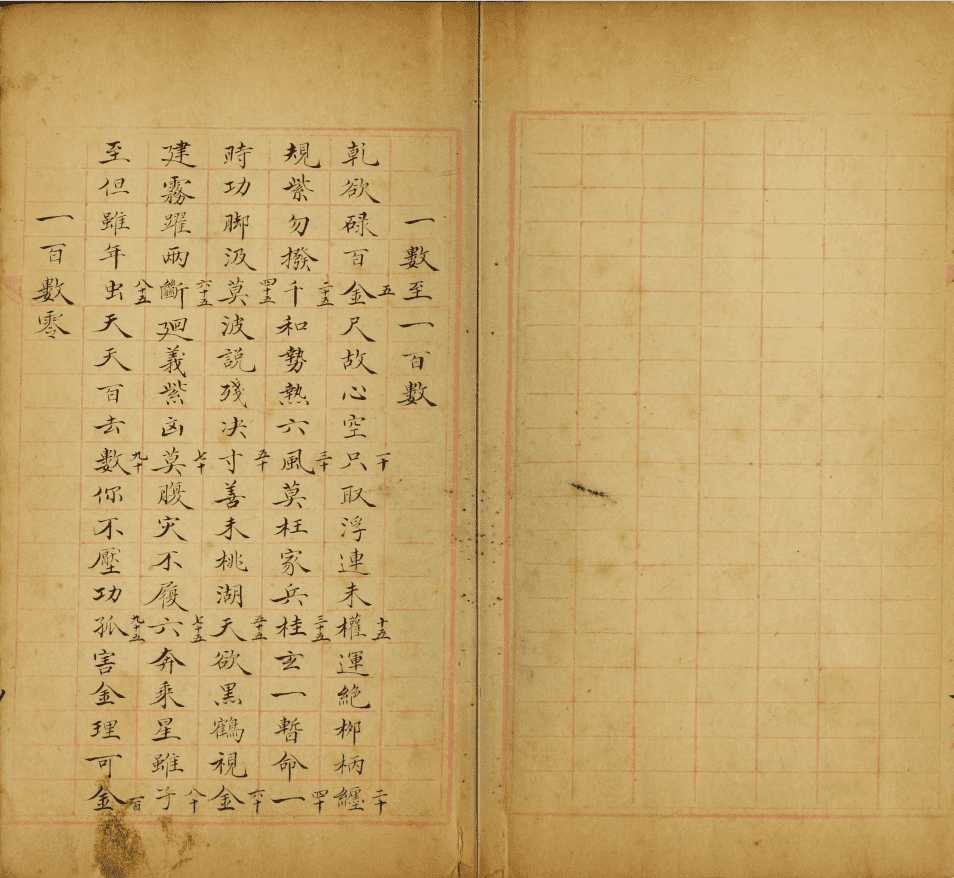 一數至一百數
乾欲碌百金五尺故心空只一十取浮連未權十五運絕柳柄纏二十
規紫勿撥千二十五和勢熱六風三十莫枉家兵桂三十五玄一暫命一四十
時功脚汲莫四十五波説殘决寸五十善未桃湖天五十五欲黑鶴視金六十
建霧躍兩斷六十五廻義紫凶莫七十腹灾不履六七十五奔乘星雖子八十
至但雖年出八十五天天百去數九十你不壓功孤九十五害金理可金百
一百數零